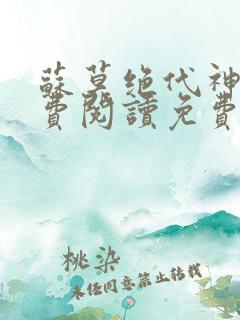 蘇莫絕代神
費閱讀免費
桃染
未經同意禁止轉載